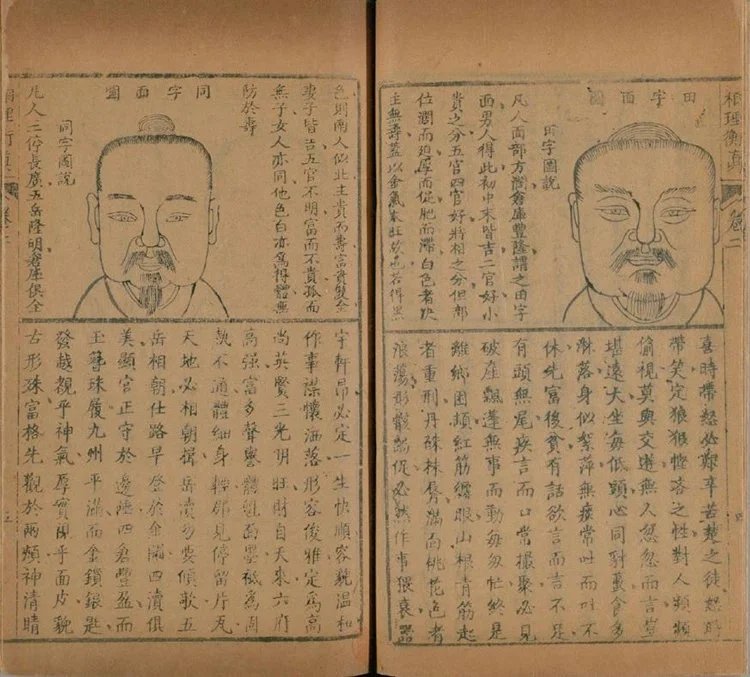 相理衡真
卷二
田字面圖
田字圖說
凡人面部方濶倉庫豐隆謂之田字
面男人得此初中末皆吉二官好小
貴之分五官四官好將相之分但部
位濶而須厚而促肥而滯白色者決
主無壽蓋以金氣本旺故也若得黑
喜時帶怒必艱辛苦楚之徒怒時
帶笑定狼猴慳吝之性對人頻頻
偷視莫與交遊無人忽忽而言豈
堪遠大坐每低頭心同豺蠆食多
淋落身似絮萍無疾常吐而吐不
休先富後貧有話欲言而言不足
有頭無尾疾言而口常撮聚必見
破産飄蓬無事而動每匆忙終是
離鄉困頓紅筋纏眼山根青筋起
者重刑丹硃唇滿面桃花色者
浪蕩形骸促必然作事猥衰器
色則兩人似此主貴而不壽富貴雙全
妻子皆吉五官不明富而不貴孤而
無子女人亦同他色白亦為得體無
防於壽
同字面圖
同字圖說
凡人二停長廣五岳隆明倉庫俱全
宇軒昂必定一生快順容貌溫和
作事謀懷洒落形容俊雅定為高
尚英賢三光明旺財自天來六府
高强富多聲譽體粗面墨祗為固
執不通體細身輕那見停留片瓦
天地必相朝揖岳瀆勿要傾歌五
岳相朝仕路早登於金闕四瀆俱
美顯官正守於邊陲四倉豐盈而
玉簪珠履九州平滿而金鎖銀匙
發越觀乎神氣厚實現乎面皮貌
古形殊富格先觀於兩頰神清睛